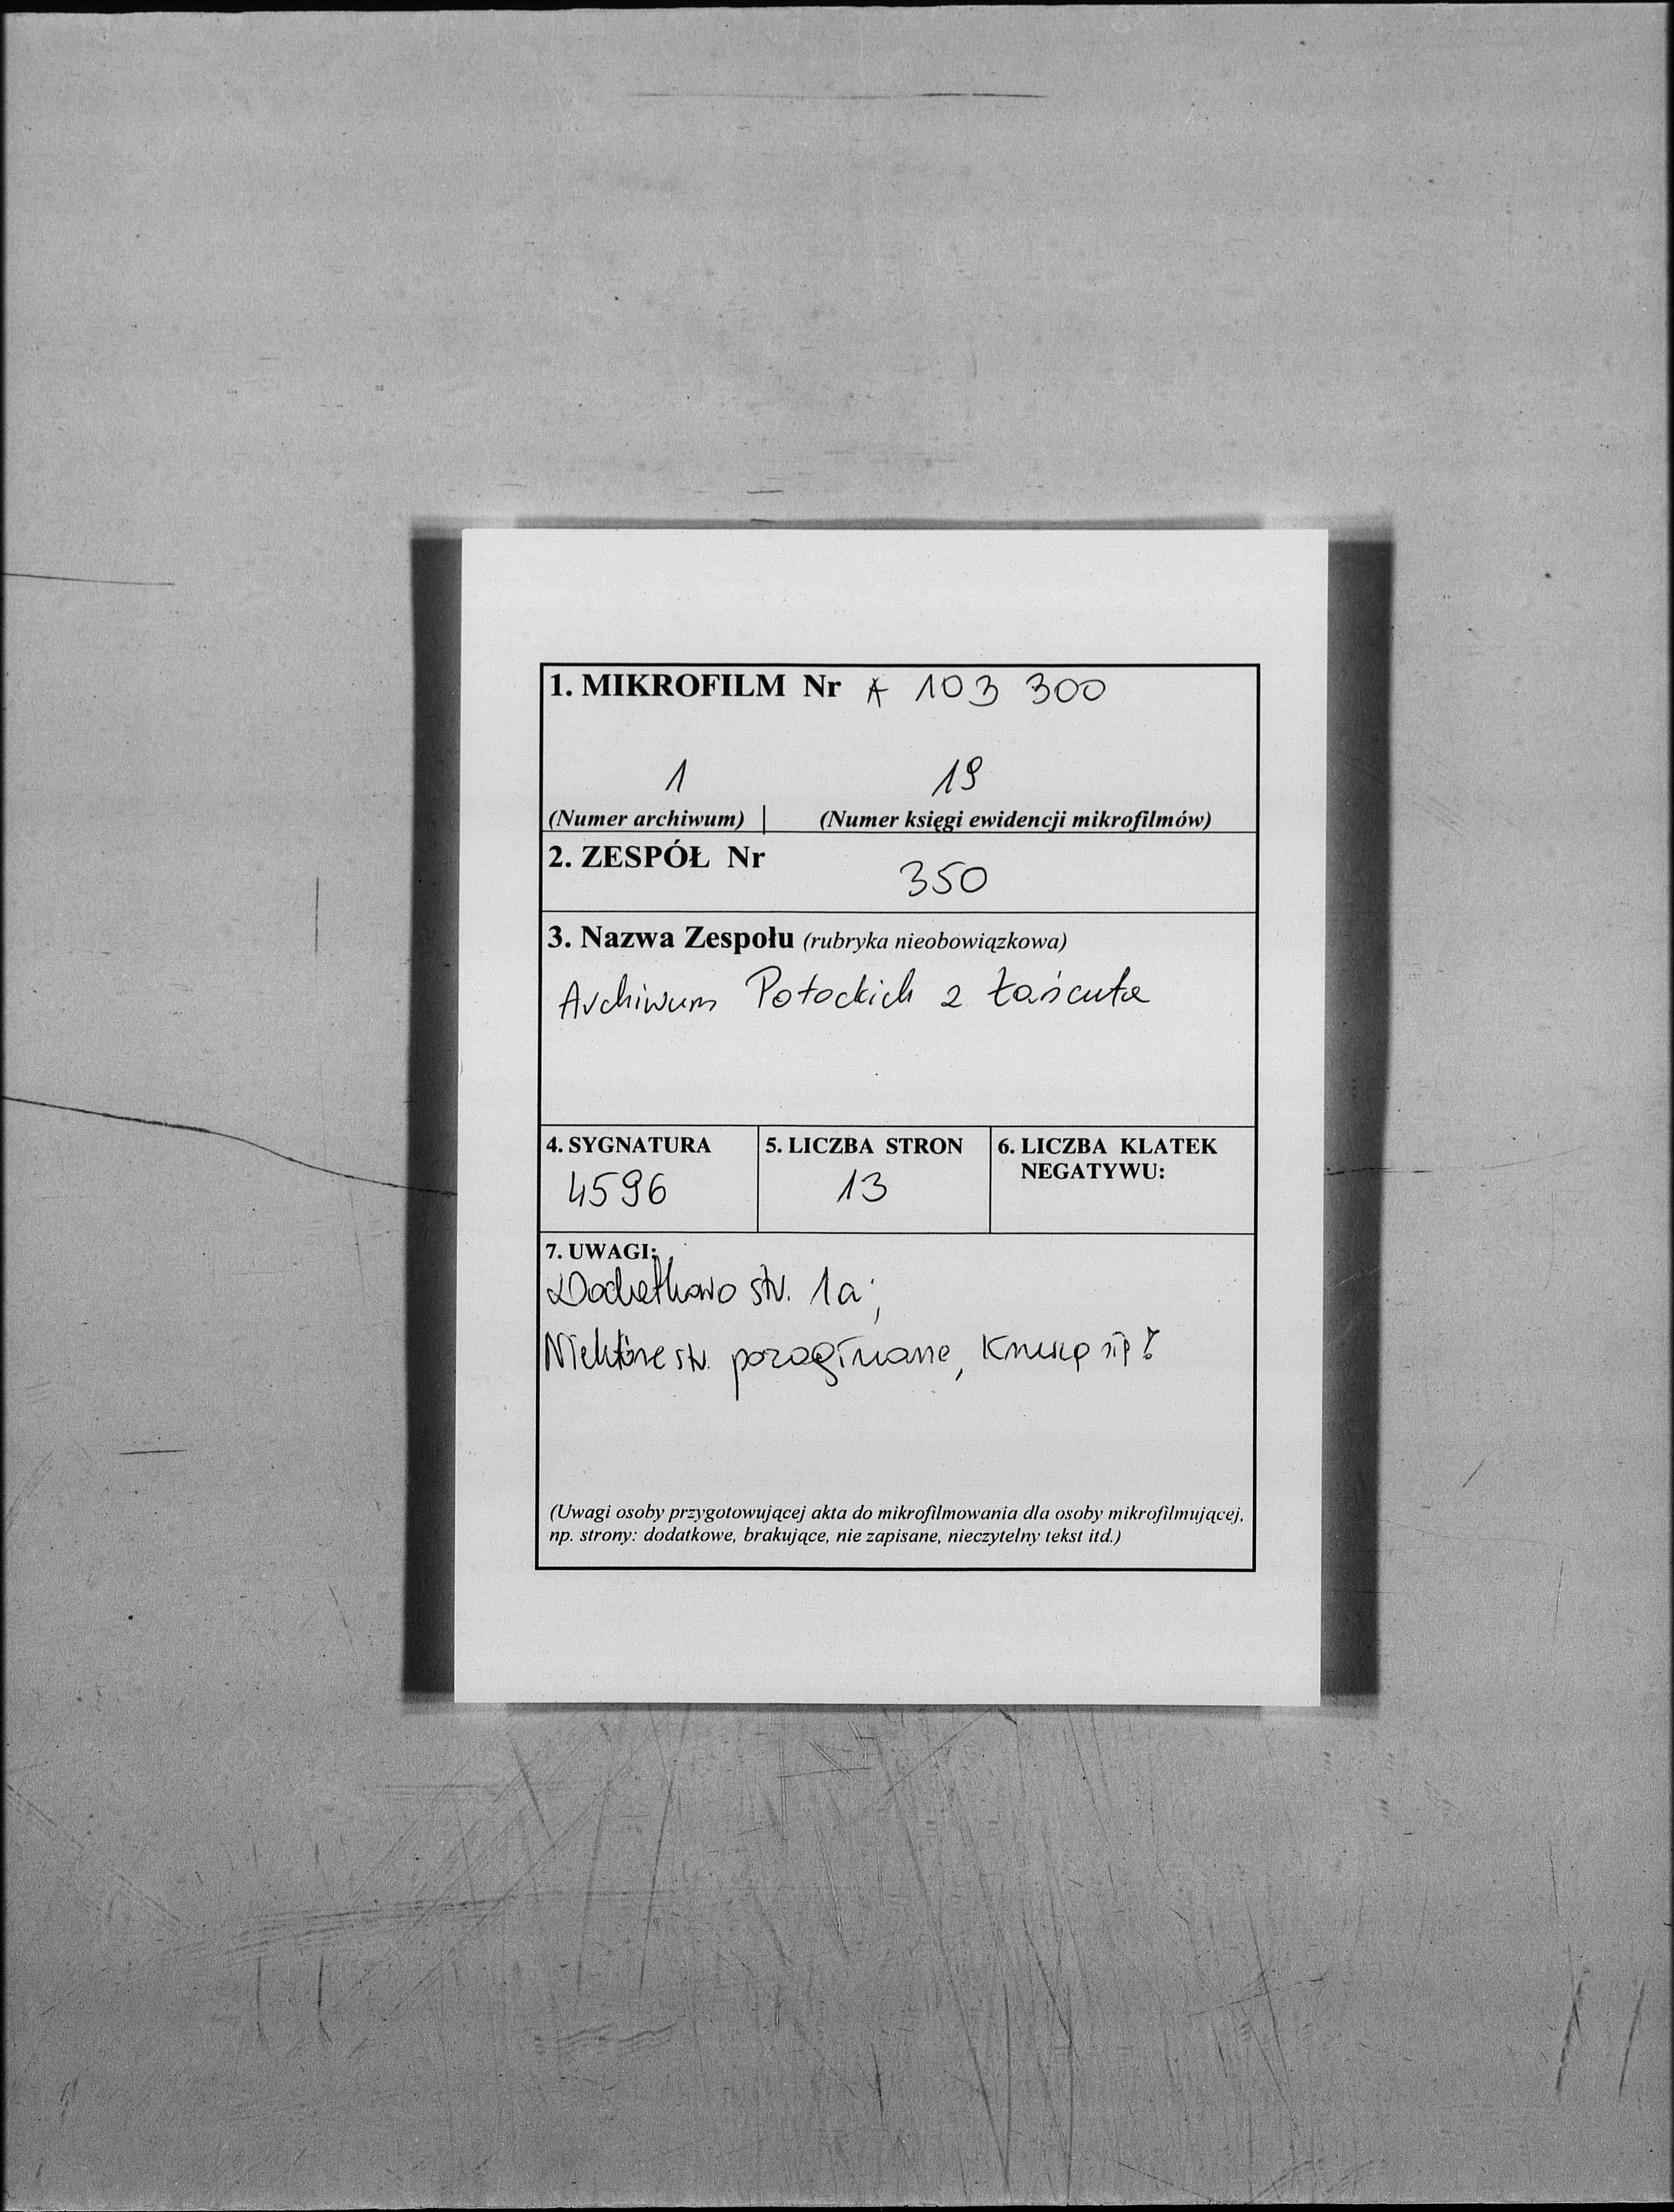 1. MIKROFILM Nr A 103 300
1 19
(Numer archiwum) | (Numer księgi ewidencji mikrofilmów)
2. ZESPÓŁ Nr
350
3. Nazwa Zespołu (rubryka nieobowiązkowa)
Archiwum Potockich z Łańcuta
4. SYGNATURA 5. LICZBA STRON 6. LICZBA KLATEK
NEGATYWU:
4596 13
7. UWAGI:
Dodatkowo str. 1a;
Niektóre str. pozaginane, kruszą się!
(Uwagi osoby przygotowującej akta do mikrofilmowania dla osoby mikrofilmującej,
np. strony: dodatkowe, brakujące, nie zapisane, nieczytelny tekst itd.)